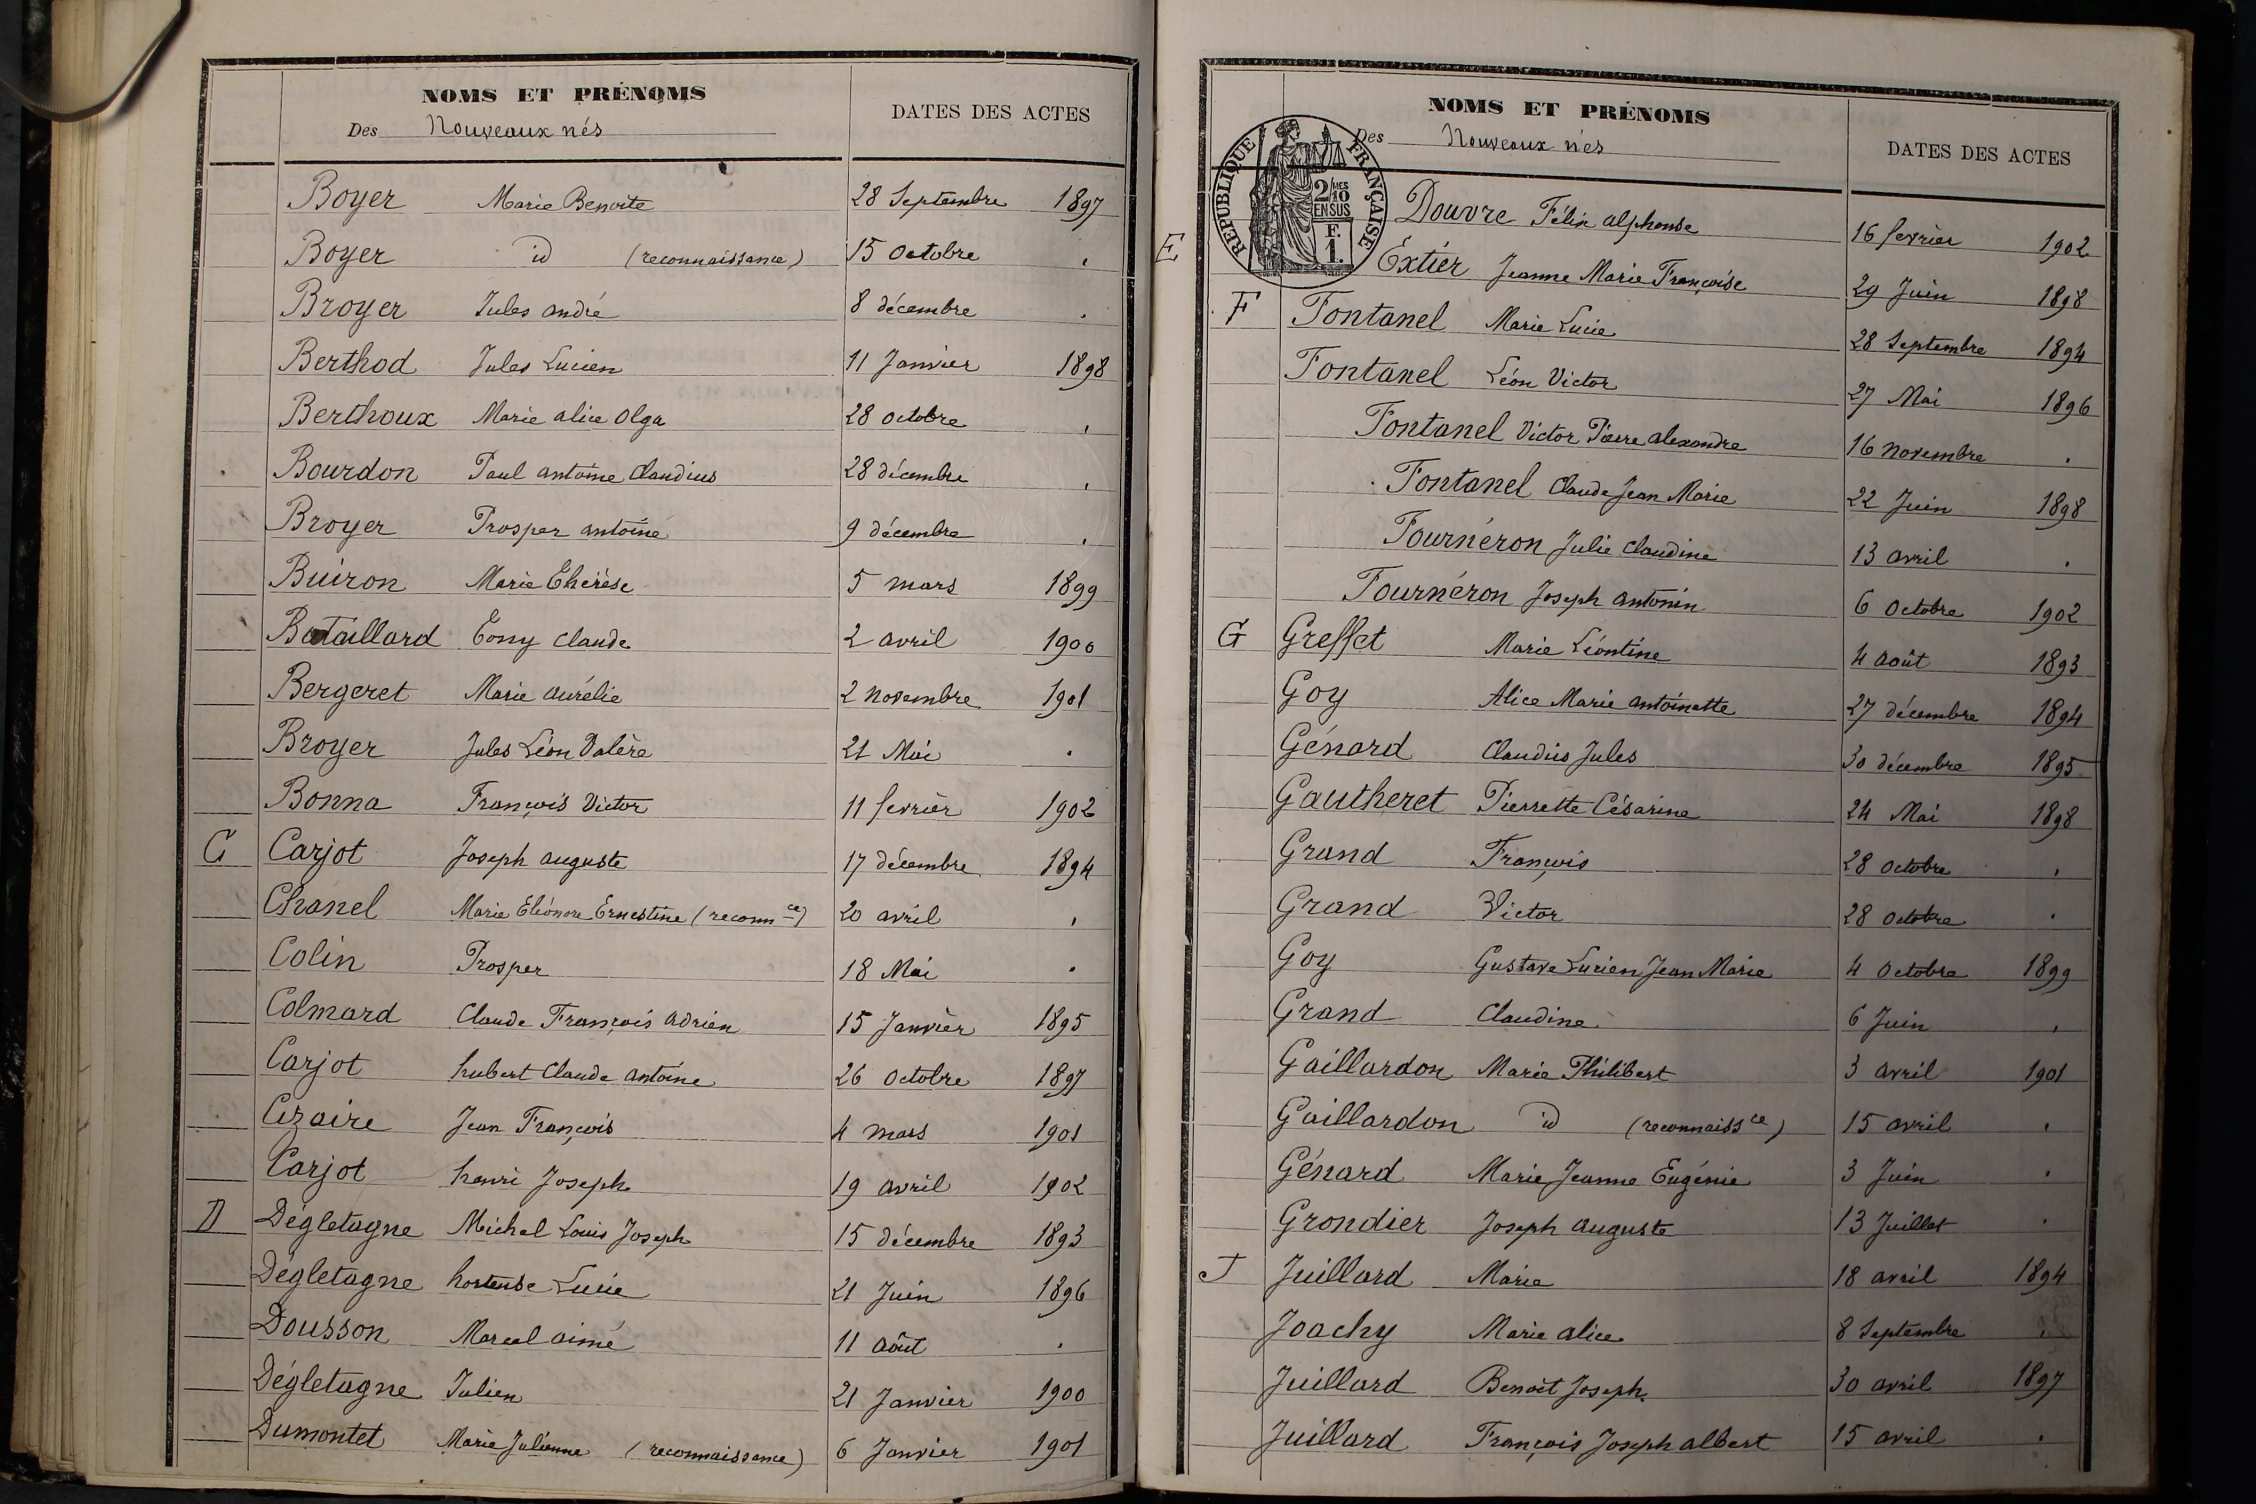 NOMS ET PRÉNOMS
Des Nouveaux nés
DATES DES ACTES
Boyer Marie Benoite 28 Septembre 1897
Boyer id (reconnaissance) 15 Octobre .
Broyer Jules André 8 décembre .
Berthod Jules Lucien 11 Janvier 1898
Berthoux Marie alice Olga 28 octobre .
Bourdon Paul antoine Claudius 28 décembre .
Broyer Prosper antoine 9 décembre .
Buiron Marie Thérèse 5 mars 1899
Bataillard Tony Claude 2 avril 1900
Bergeret Marie aurélie 2 novembre 1901
Broyer Jules Léon Valère 21 Mai .
Bonna François Victor 11 fevrier 1902
C Carjot Joseph auguste 17 décembre 1894
Chanel Marie Eléonore Ernestine (reconnce) 20 avril .
Colin Prosper 18 Mai .
Colmard Claude François adrien 15 Janvier 1895
Carjot hubert Claude antoine 26 octobre 1897
Cézaire Jean François 4 mars 1901
Carjot henri Joseph 19 avril 1902
D Dégletagne Michel Louis Joseph 15 décembre 1893
Dégletagne hortense Lucie 21 Juin 1896
Dousson Marcel aimé 11 août .
Dégletagne Julien 21 Janvier 1900
Dumontet Marie Julienne (reconnaissance) 6 Janvier 1901
NOMS ET PRÉNOMS
Des Nouveaux nés
DATES DES ACTES
RÉPUBLIQUE FRANÇAISE
2/10 MES
EN SUS
F.
1.
Douvre Félix alphonse 16 fevrier 1902
E Éxtier Jeanne Marie Françoise 29 Juin 1898
F Fontanel Marie Lucie 28 Septembre 1894
Fontanel Léon Victor 27 Mai 1896
Fontanel Victor Pierre alexandre 16 novembre .
Fontanel Claude Jean Marie 22 Juin 1898
Fournéron Julie Claudine 13 avril .
Fournéron Joseph antonin 6 octobre 1902
G Greffet Marie Léontine 4 août 1893
Goy Alice Marie antoinette 27 décembre 1894
Génard Claudius Jules 30 décembre 1895
Gautheret Pierrette Césarine 24 Mai 1898
Grand François 28 octobre .
Grand Victor 28 octobre .
Goy Gustave Lucien Jean Marie 4 octobre 1899
Grand Claudine 6 Juin .
Gaillardon Marie Philibert 3 avril 1901
Gaillardon id (reconnaissce) 15 avril .
Génard Marie Jeanne Eugénie 3 Juin .
Grondier Joseph auguste 13 Juillet .
J Juillard Marie 18 avril 1894
Joachy Marie alice 8 Septembre .
Juillard Benoît Joseph 30 avril 1897
Juillard François Joseph albert 15 avril .